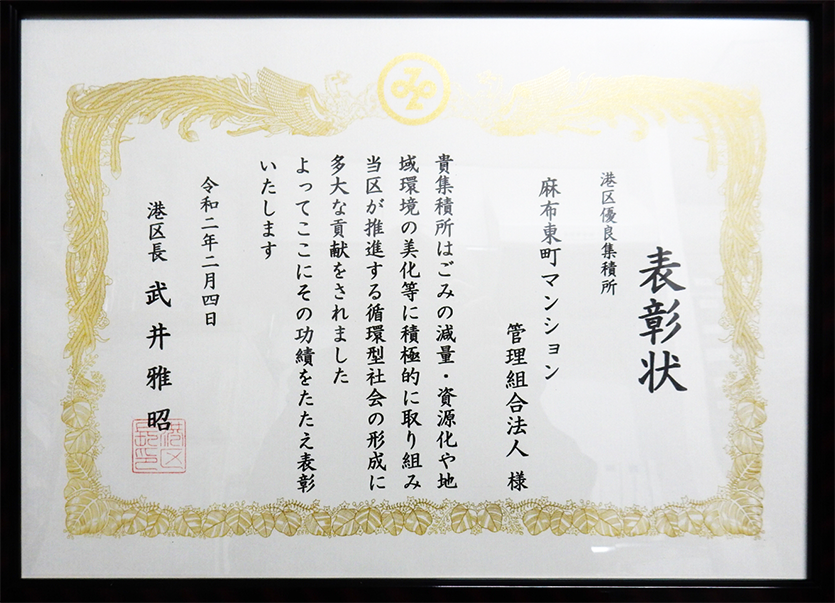 表彰状
港区優良集積所
麻布東町マンション
管理組合法人 様
貴集積所はごみの減量・資源化や地
域環境の美化等に積極的に取り組み
当区が推進する循環型社会の形成に
多大な貢献をされました
よってここにその功績をたたえ表彰
いたします
令和二年二月四日
港区長 武井雅昭
港区
長印